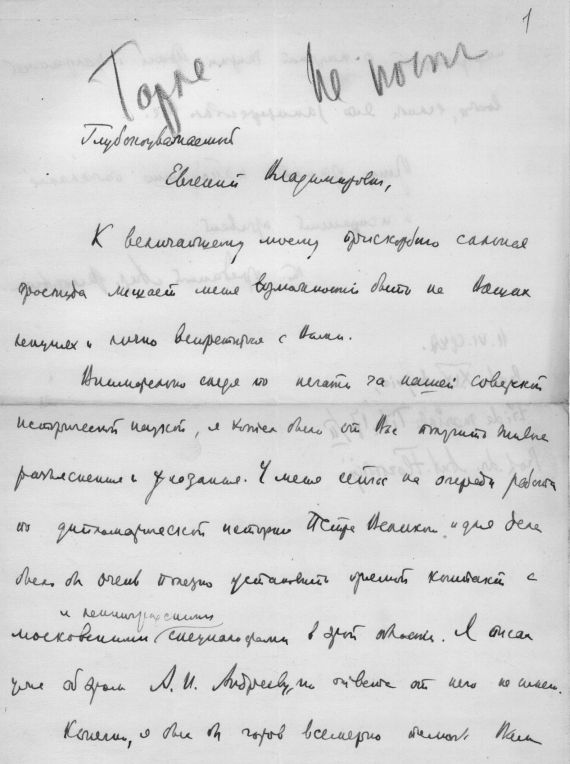 1
Тарле
Не посл
Глубокоуважаемый
Евгений Владимирович,
К величайшему моему прискорбию сильная
простуда лишает меня возможности быть на Ваших
лекциях и лично встретиться с Вами.
Внимательно следя по печати за нашей советской
исторической наукой, я хотел было от Вас получить живые
разъяснения и указания. У меня сейчас на очереди работа
по дипломатической истории Петра Великого и для дела
было бы очень полезно установить прямой контакт с
и ленинградскими
московскими специалистами в этой области. Я писал
уже об этом А. И. Андрееву, но ответа от него не имею.
Конечно, я был бы готов всемерно помочь Вам